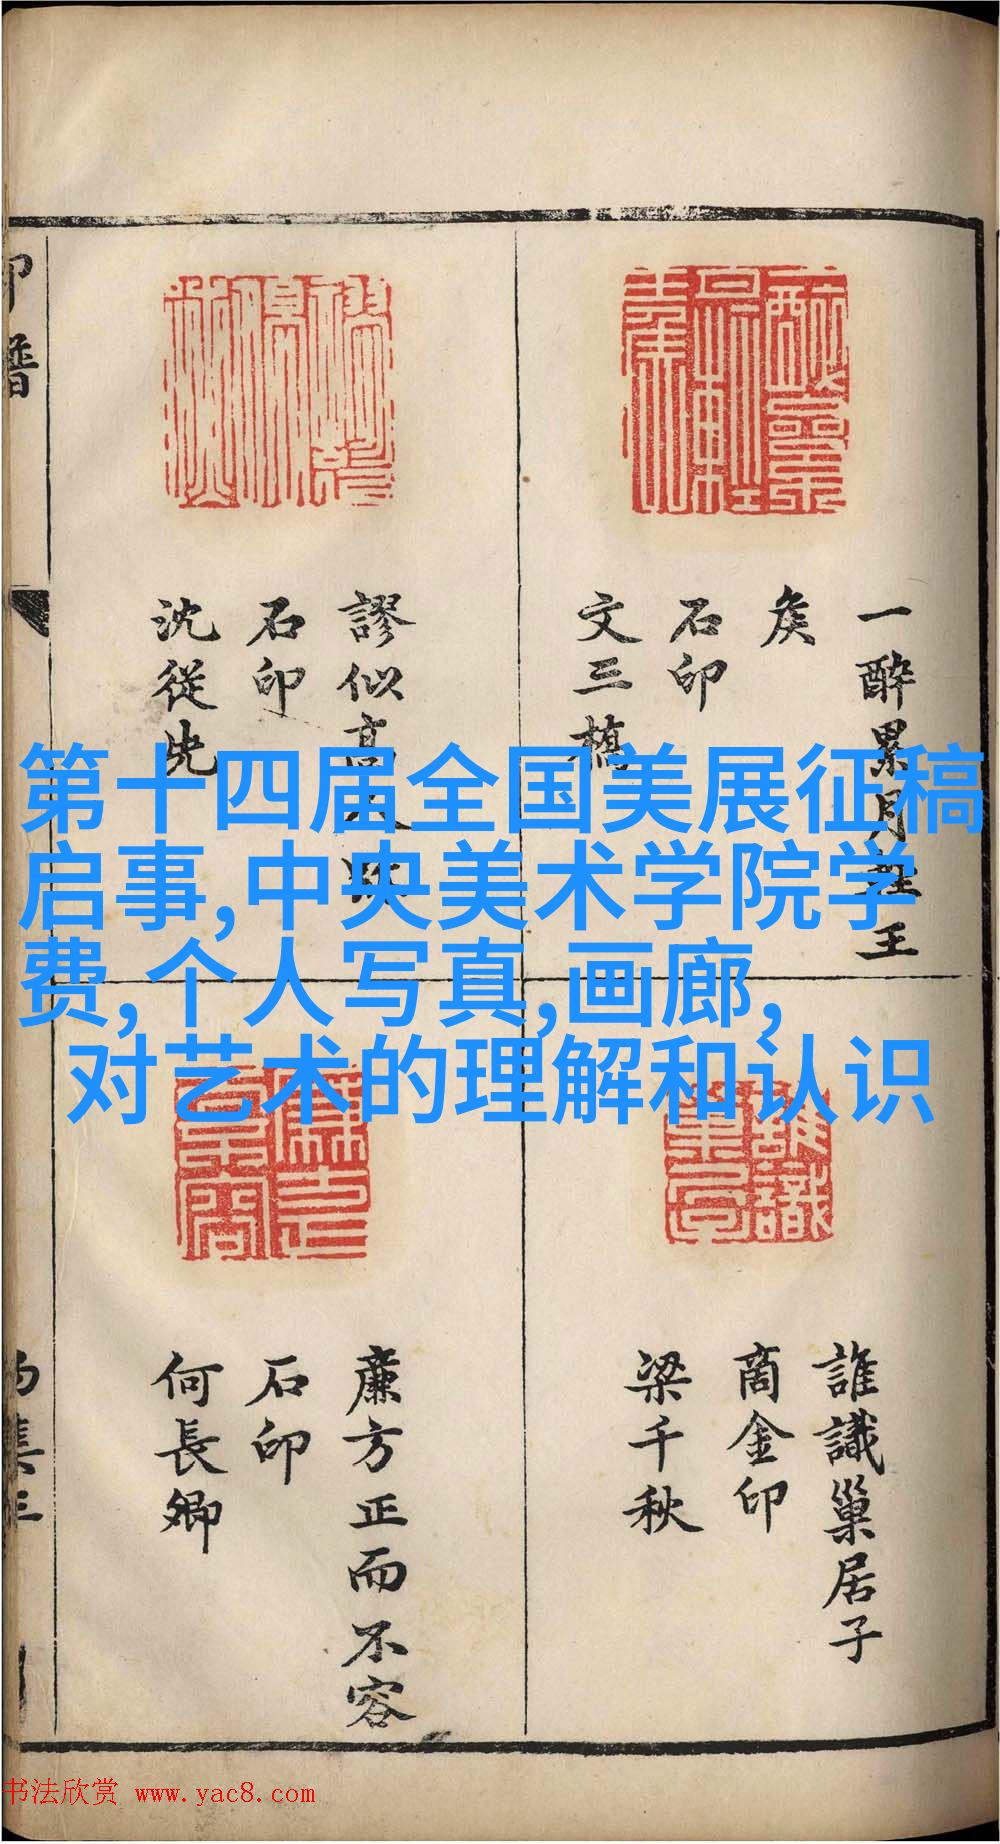 一醉累月輕王
矦
石印
文三橋
謬似高人臥
石印
沈從先
第十四届全国美展征稿
启事,中央美术学院学
费,个人写真,画廊,
对艺术的理解和认识
誰識巢居子
商金印
梁千秋
廉方正而不容
石印
何長卿
印譜
書法欣赏 www.yac8.com